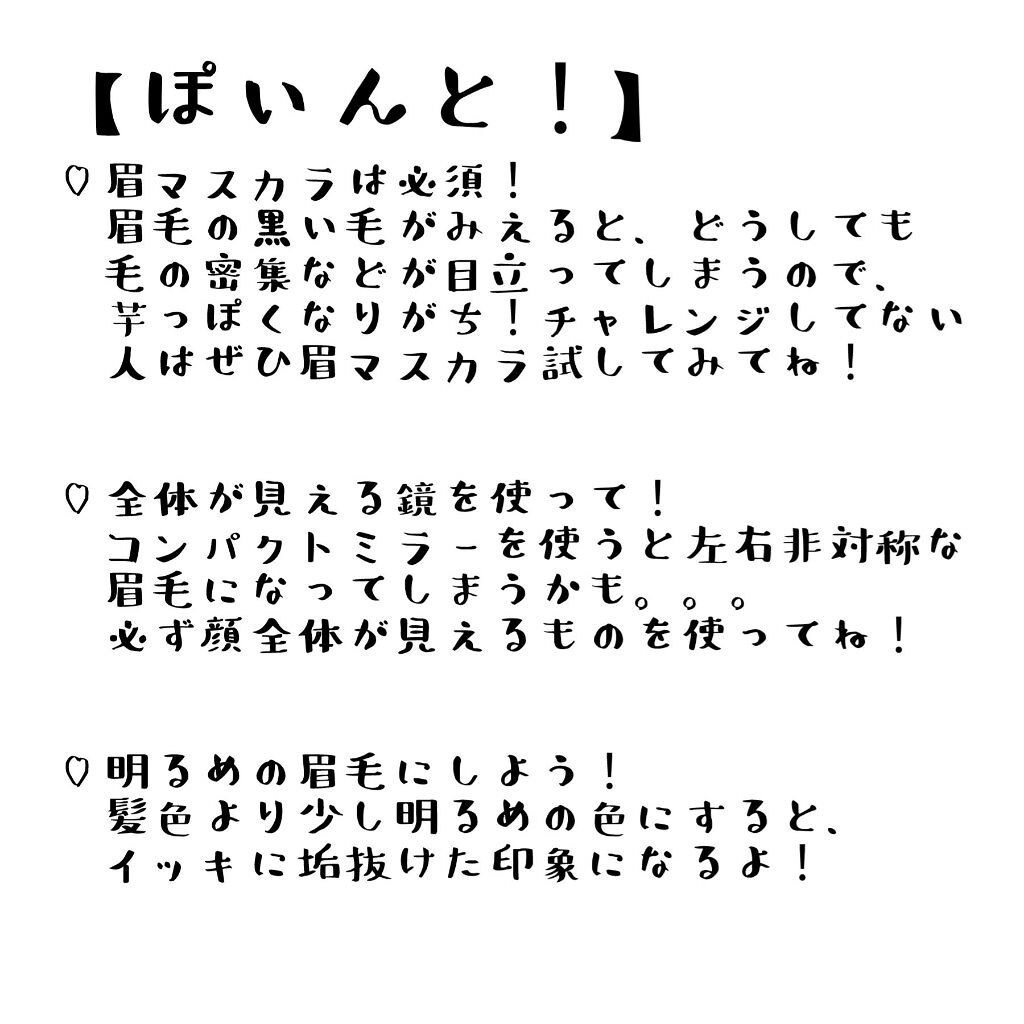 【ぽいんと！】
♡眉マスカラは必須！
眉毛の黒い毛がみえると、どうしても
毛の密集などが目立ってしまうので、
芋っぽくなりがち！チャレンジしてない
人はぜひ眉マスカラ試してみてね！
♡全体が見える鏡を使って！
コンパクトミラーを使うと左右非対称な
眉毛になってしまうかも。。。
必ず顔全体が見えるものを使ってね！
♡明るめの眉毛にしよう！
髪色より少し明るめの色にすると、
イッキに垢抜けた印象になるよ！